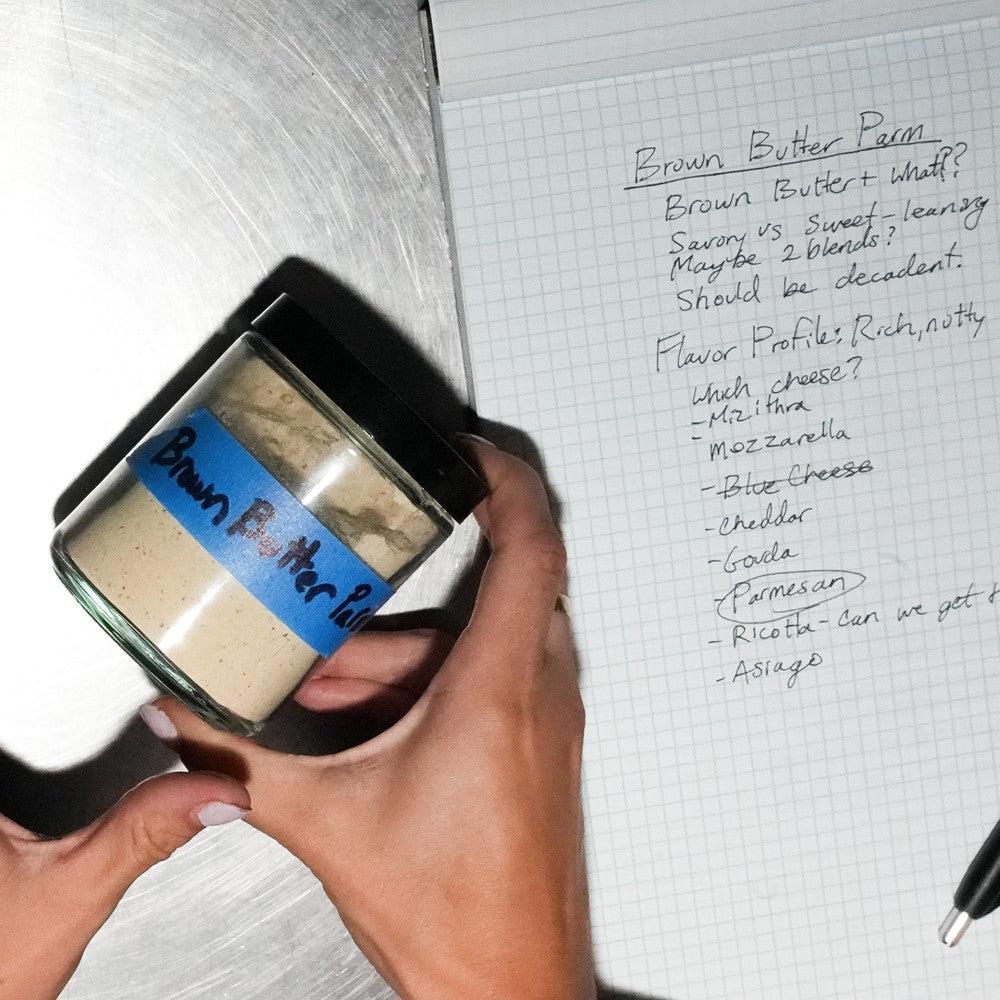 Brown Butter Parm
Brown Butter + what??
Savory vs Sweet-leaning
Maybe 2 blends?
Should be decadent.
Flavor Profile: Rich, nutty
Which cheese?
- Mizithra
Mozzarella
- Blue Cheese
- Cheddar
- Gouda
- Parmesan
- Ricotta - Can we get
- Asiago
Brown Butter